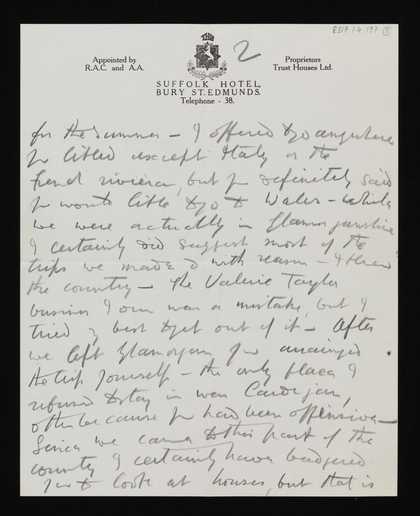 2
Appointed by
R.A.C. and A.A.
Proprietors
Trust Houses Ltd.
SUFFOLK HOTEL,
BURY ST. EDMUNDS.
Telephone - 38.
for the summer – I offered to go anywhere
you liked except Italy or the
French riviera, but you definitely said
you would like to go to Wales – While
we were actually in Glamorganshire
I certainly did suggest most of the
trips we made & with reason – I knew
the country – The Valerie Taylor
business I own was a mistake, but I
tried my best to get out of it – After
we left Glamorgan you arranged
the trip yourself – the only place I
refused to stay in was Cardigan,
& that because you had been offensive –
Since we came to this part of the
country I certainly have badgered
you to look at houses, but that is